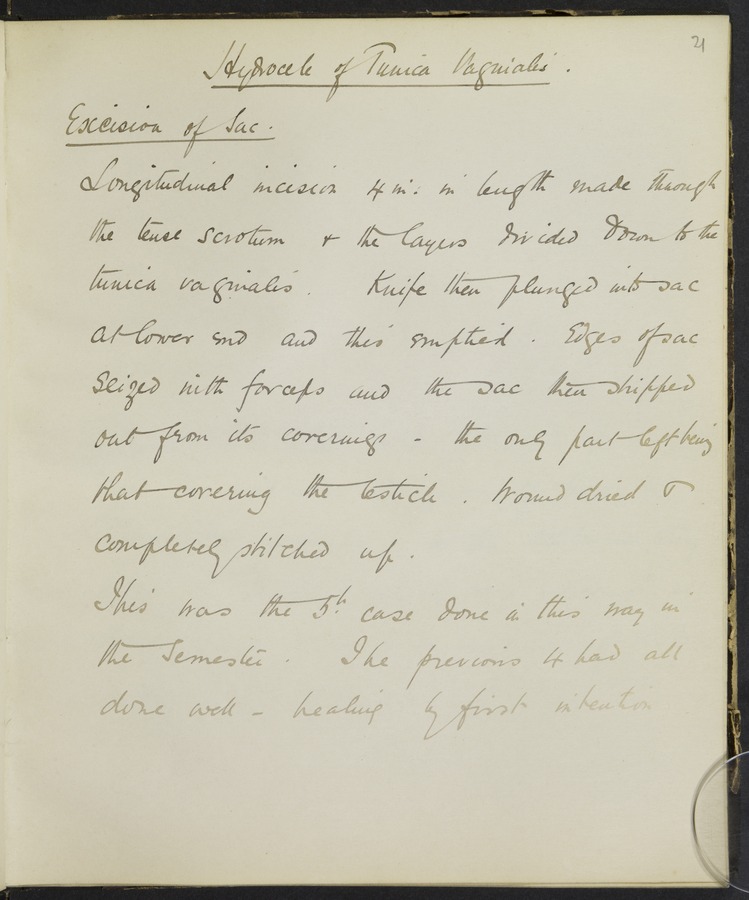 21
Hydrocele of Tunica Vaginalis.
Excision of Sac.
Longitudinal incision 4 in: in length made through
the tense scrotum + the layers divided down to the
tunica vaginalis. Knife then plunged into sac
at lower end and this emptied. Edges of sac
seized with forceps and the sac then stripped
out from its coverings - the only part left being
that covering the testicle. Wound dried &
completely stitched up.
This was the 5th case done in this way in
the Semester. The previous 4 had all
done well - healing by first intention